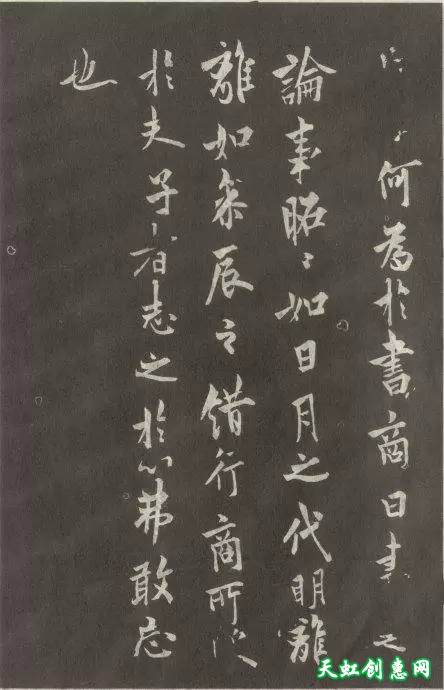 何爲於書商曰書之
論事昭〻如日月之代明離
離如參辰之錯行商所受
於夫子者志之於心弗敢忘
也
天虹创惠网